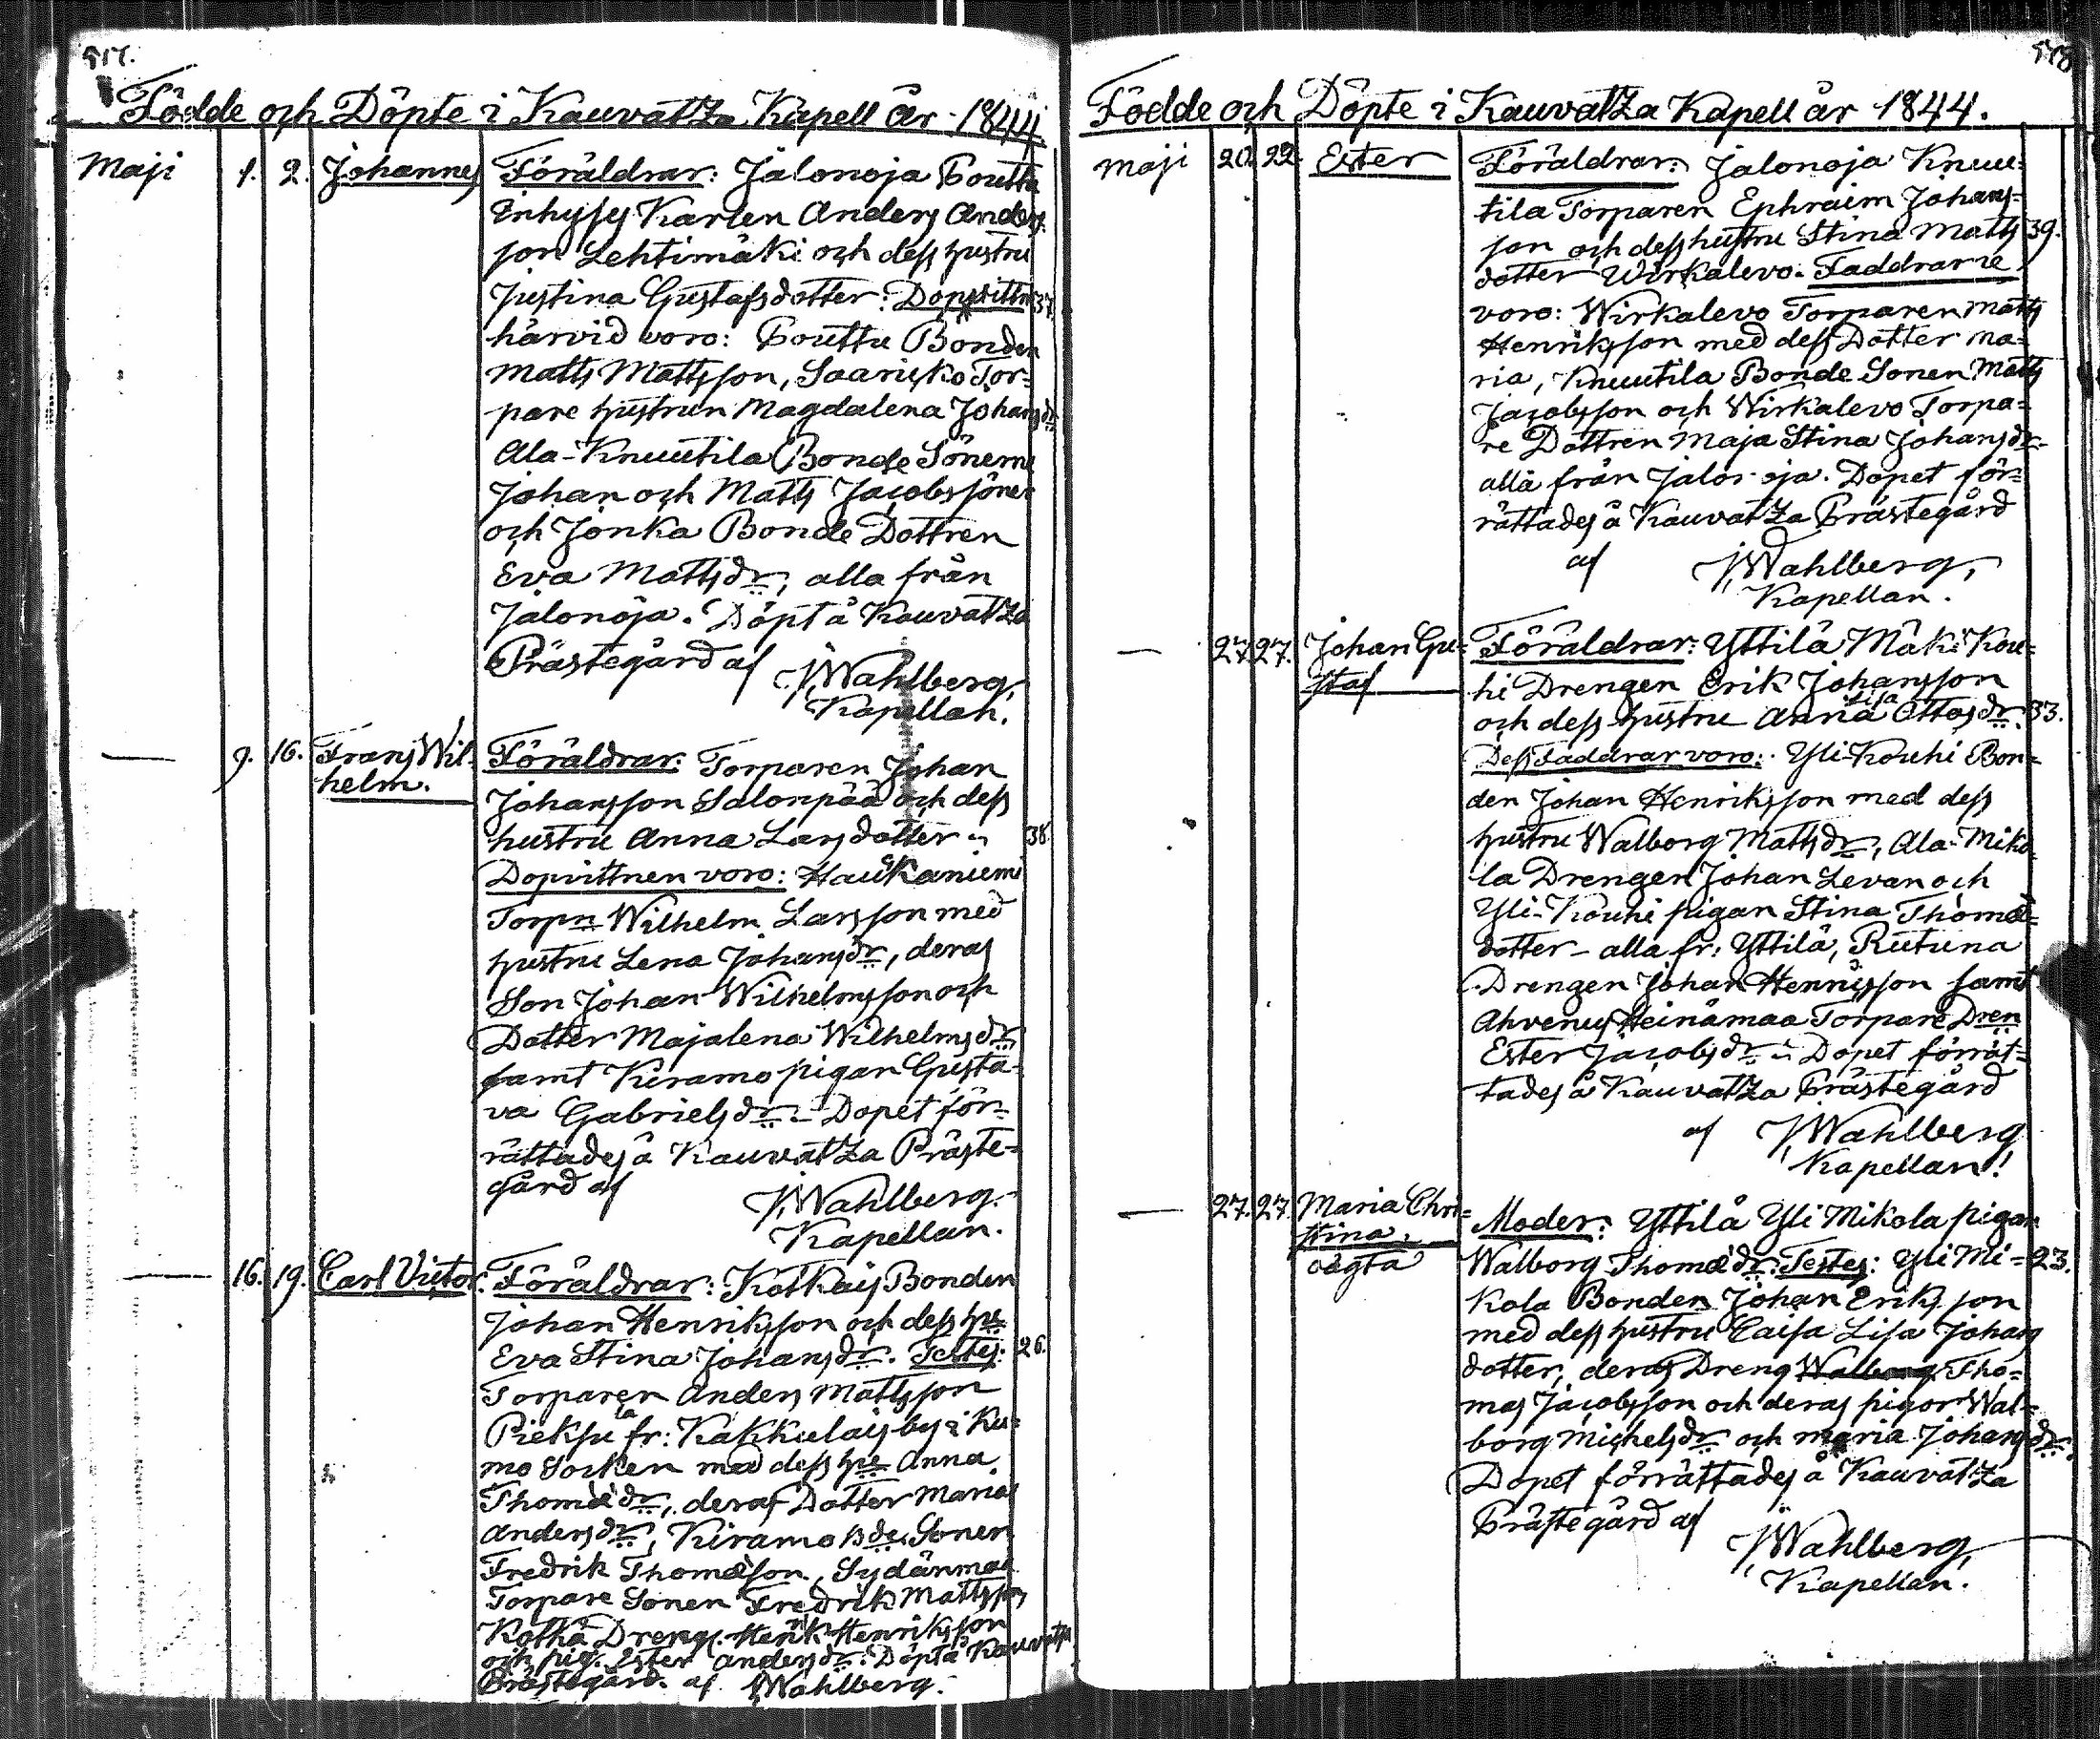 517.
Födde och Döpte i Kauvatza Kapell År 1844
Maji 1. 2. Johannes Föräldrar: Jalonoja Pouttu
Inhyses Karlen Anders Anders-
son Lehtimäki och dess hustru
Justina Gustafsdotter: Dopvittn 37.
härvid voro: Pouttu Bonden
Matts Mattsson, Saarisko Tor=
pare hustrun Magdalena Johansdr
Ala-Knuutila Bonde Sönerne
Johan och Matts Jacobssöner
och Jonka Bonde Dottren
Eva Mattsdr, alla från
Jalonoja. Döpt å Kauvatza
Prästegård af
J. Wahlberg,
Kapellan.
— 9. 16. Frans Wil-
helm. Föräldrar: Torparen Johan
Johansson Salonpää och dess
hustru Anna Larsdotter 38.
Dopvittnen voro: Haukaniemi
Torpn Wilhelm Larsson med
hustru Lena Johansdr, deras
Son Johan Wilhelmsson och
Dotter Majalena Wilhelmsdr
samt Kiramo pigan Gusta-
va Gabrielsdr. - Dopet för-
rättades å Kauvatza Präste=
gård af
J. Wahlberg.
Kapellan.
— 16. 19. Carl Victor. Föräldrar: Kotkais Bonden
Johan Henriksson och dess hu
Eva Stina Johansdr. Testes: 26.
Torparen Anders Mattsson
Pieksula fr: Kakkulais by i Ku=
mo Socken med dess hu Anna
Thomædr, deras Dotter Maria
Andersdr, Kiramo Bde Sonen
Fredrik Thomæson, Sydänmaa
Torpare Sonen Fredrik Mattsson
Kotka Dreng. Henrik Henriksson
och pig. Ester Andersdr. Döpt å Kauvatza
Prästegård. af J Wahlberg.
518
Födde och Döpte i Kauvatza Kapell år 1844.
Maji 20. 22. Ester Föräldrar: Jalonoja Knuu=
tila Torparen Ephraim Johans=
son och dess hustru Stina Matts 39.
dotter Wirkalevo. Faddrarne
voro: Wirkalevo Torparen Matts
Henriksson med dess Dotter Ma=
ria, Knuutila Bonde Sonen Matts
Jacobsson och Wirkalevo Torpa=
re Dottren Maja Stina Johansdr
alla från Jalonoja. Dopet för=
rättades å Kauvatza Prästegård
af J. Wahlberg,
Kapellan.
— 27. 27. Johan Gu=
staf Föräldrar: Yttilä Mäki Kou=
hi Drengen Erik Johansson
och dess hustru Anna Lisa Ottosdr. 33.
Dess Faddrar voro: Yli-Kouhi Bon=
den Johan Henriksson med dess
hustru Walborg Mattsdr, Ala-Miko=
la Drengen Johan Levan och
Yli-Kouhi pigan Stina Thomæ=
dotter - alla fr: Yttilä, Rutuna
Drengen Johan Hennisson samt
Ahvenus Heinämaa Torpare Dren
Ester Jacobsdr Dopet förrät=
tades å Kauvatza Prästegård
af J. Wahlberg
Kapellan!
— 27. 27. Maria Chri=
stina,
oägta Moder: Yttilä Yli Mikola pigan
Walborg Thomædr. Testes: Yli Mi= 23.
kola Bonden Johan Eriksson
med dess hustru Caisa Lisa Johans
dotter, deras Dreng Walborg Tho=
mas Jacobsson och deras pigor Wal=
borg Michelsdr och Maria Johansdr.
Dopet förrättades å Kauvatza
Prästegård af
J. Wahlberg,
Kapellan.